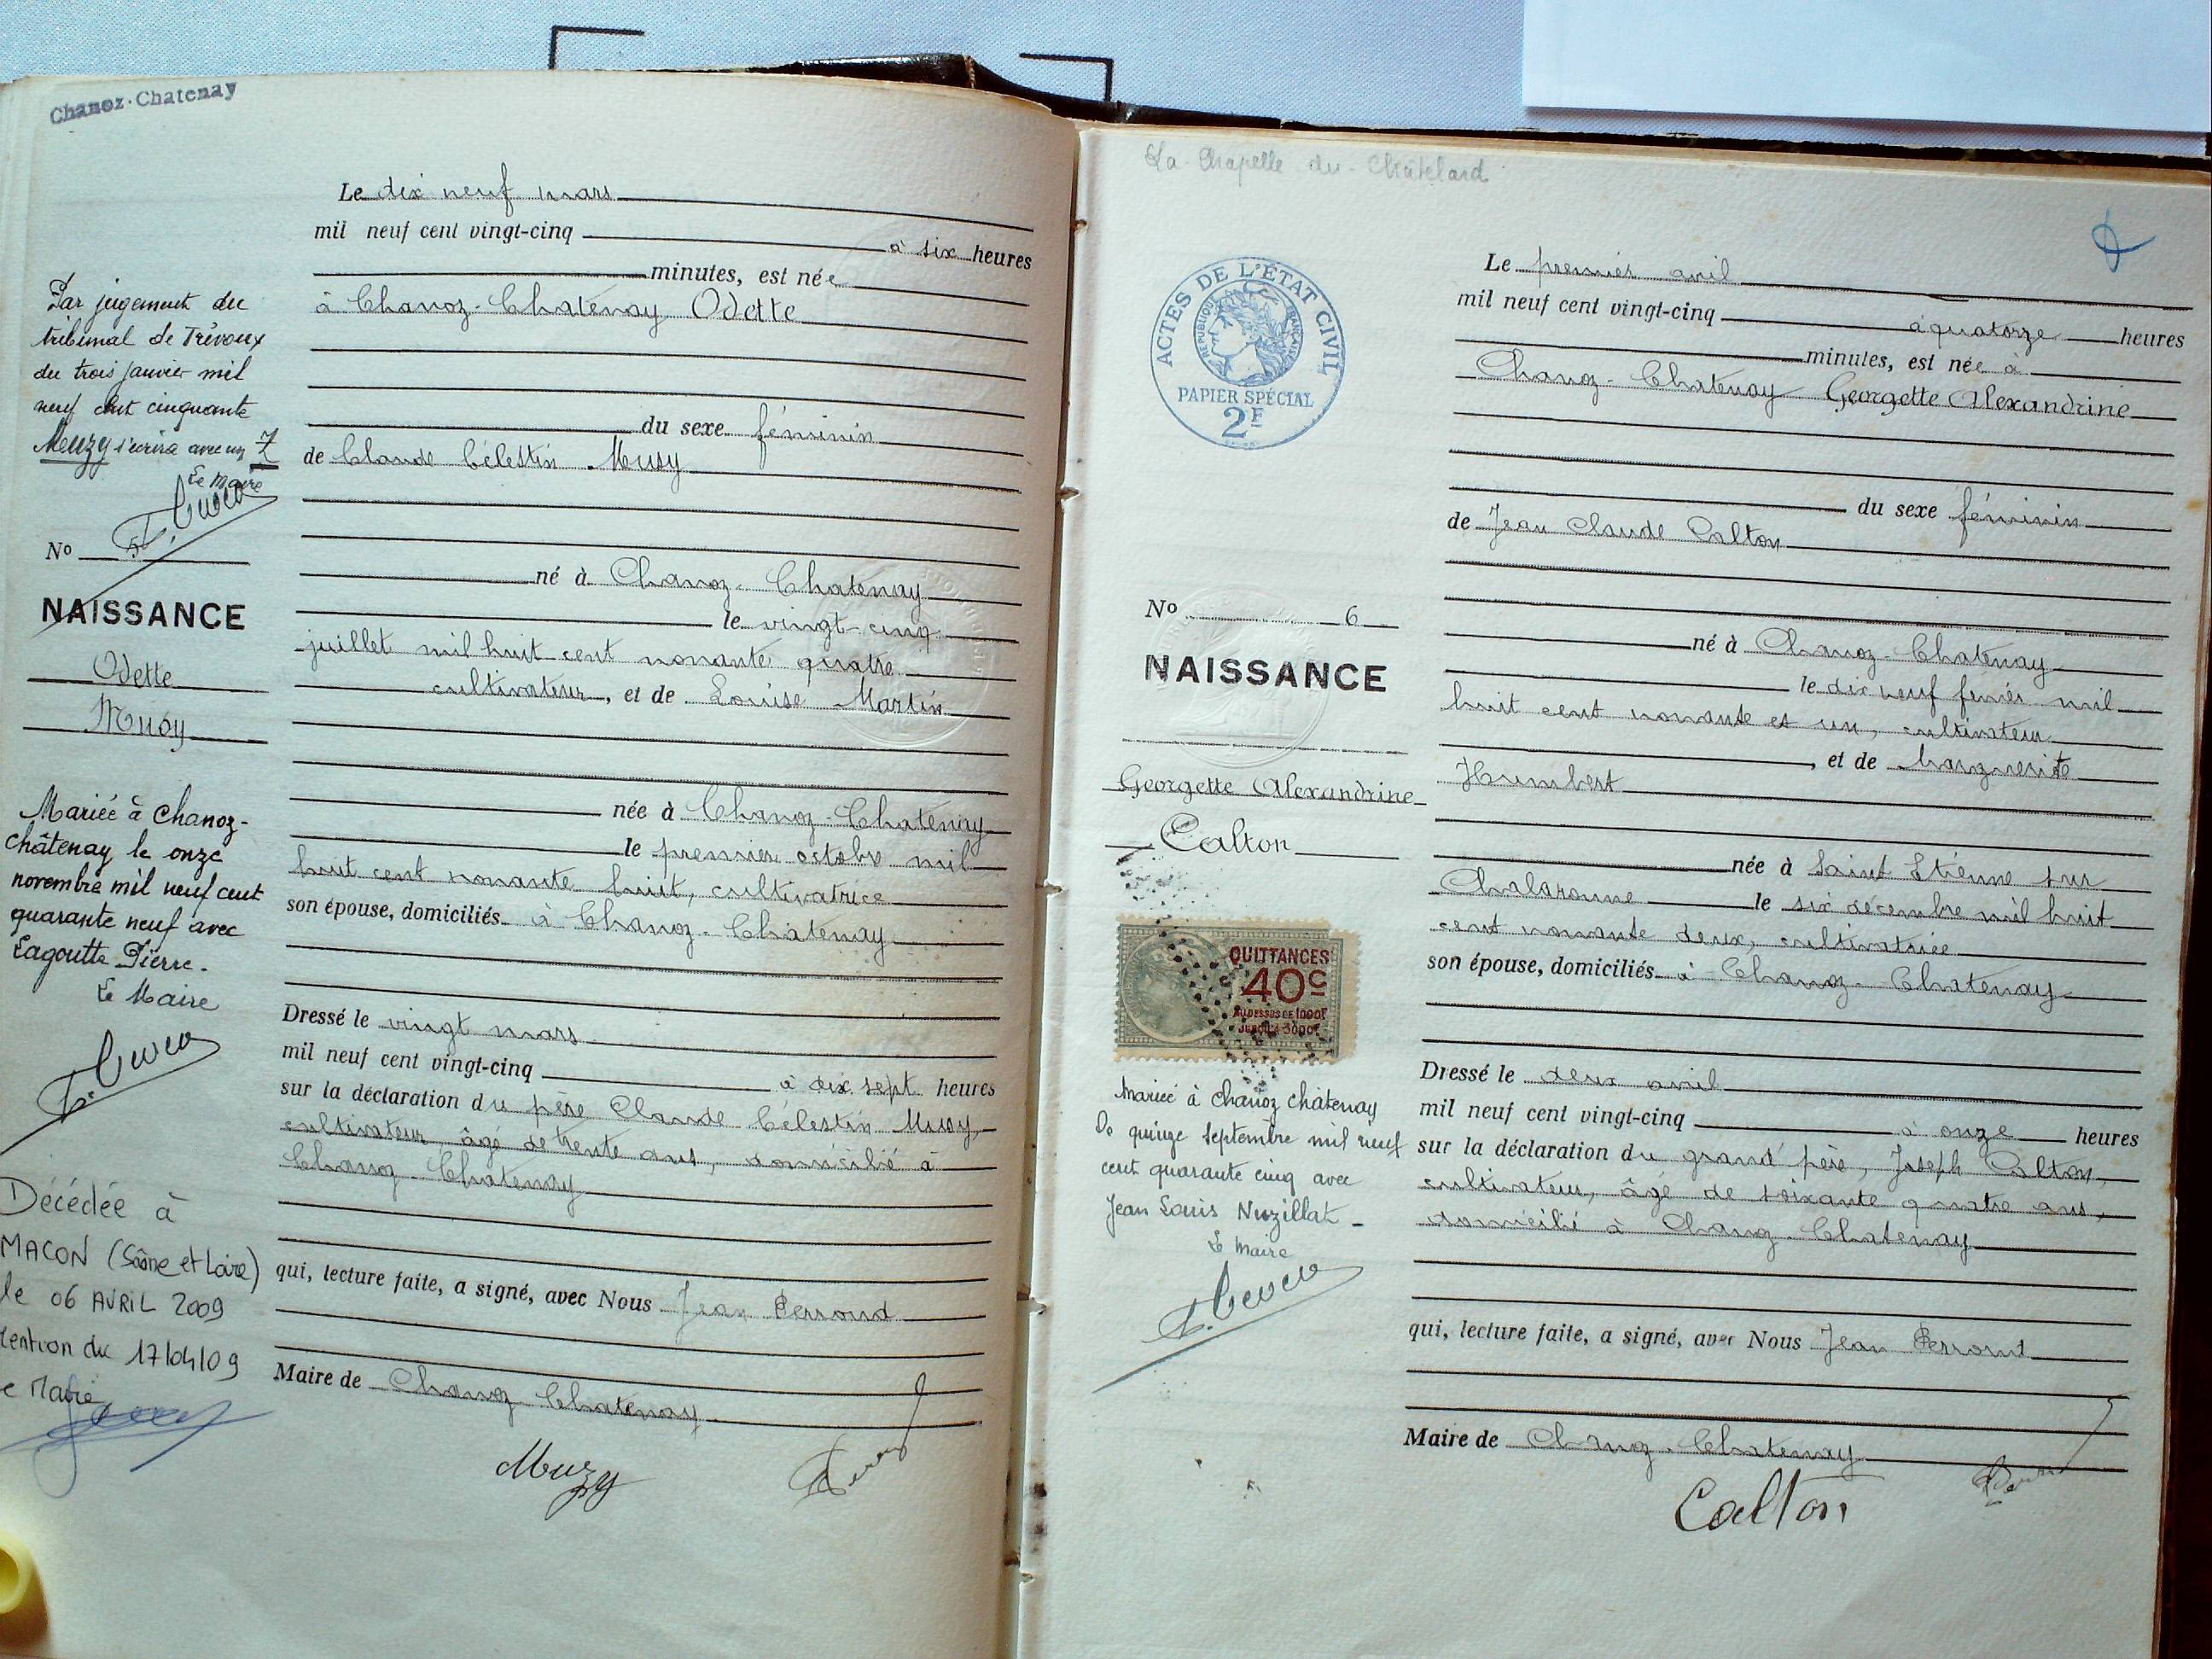 Chanoz-Chatenay
Le dix neuf mars
mil neuf cent vingt-cinq à six heures
minutes, est née
à Chanoz-Chatenay Odette
du sexe féminin
de Claude Célestin Musy
né à Chanoz-Chatenay
le vingt-cinq
juillet mil huit cent nonante quatre
cultivateur, et de Louise Martin
née à Chanoz-Chatenay
le premier octobre mil
huit cent nonante huit, cultivatrice
son épouse, domiciliés à Chanoz-Chatenay
Dressé le vingt mars
mil neuf cent vingt-cinq à dix sept heures
sur la déclaration du père Claude Célestin Musy
cultivateur, âgé de trente ans, domicilié à
Chanoz-Chatenay
qui, lecture faite, a signé, avec Nous Jean Perroud
Maire de Chanoz Chatenay
Muzy
Par jugement du
tribunal de Trévoux
du trois janvier mil
neuf cent cinquante
Meuzy s'écrira avec un Z
Le Maire
No 5
NAISSANCE
Odette
Musy
Mariée à Chanoz-
Châtenay le onze
novembre mil neuf cent
quarante neuf avec
Lagoutte Pierre.
Le Maire
Décédée à
MACON (Saône et Loire)
le 06 AVRIL 2009
mention du 17/04/09
La Chapelle du-Châtelard
Le premier avril
mil neuf cent vingt-cinq à quatorze heures
minutes, est née à
Chanoz-Chatenay Georgette Alexandrine
du sexe féminin
de Jean Claude Calton
né à Chanoz-Chatenay
le dix neuf février mil
huit cent nonante et un, cultivateur
, et de Marguerite
Humbert
née à Saint Etienne sur
Chalaronne le six décembre mil huit
cent nonante deux, cultivatrice
son épouse, domiciliés à Chanoz-Chatenay
Dressé le deux avril
mil neuf cent vingt-cinq à onze heures
sur la déclaration du grand père, Joseph Calton,
cultivateur, âgé de soixante quatre ans,
domicilié à Chanoz-Chatenay
qui, lecture faite, a signé, avec Nous Jean Perroud
Maire de Chanoz-Chatenay
Calton
ACTES DE L'ÉTAT CIVIL
RÉPUBLIQUE FRANÇAISE
PAPIER SPÉCIAL
2F
No 6
NAISSANCE
Georgette Alexandrine
Calton
QUITTANCES
40c
AU DESSUS DE 1000F
JUSQU'A 3000F
Mariée à Chanoz Châtenay
le quinze septembre mil neuf
cent quarante cinq avec
Jean Louis Nuzillat
Le Maire